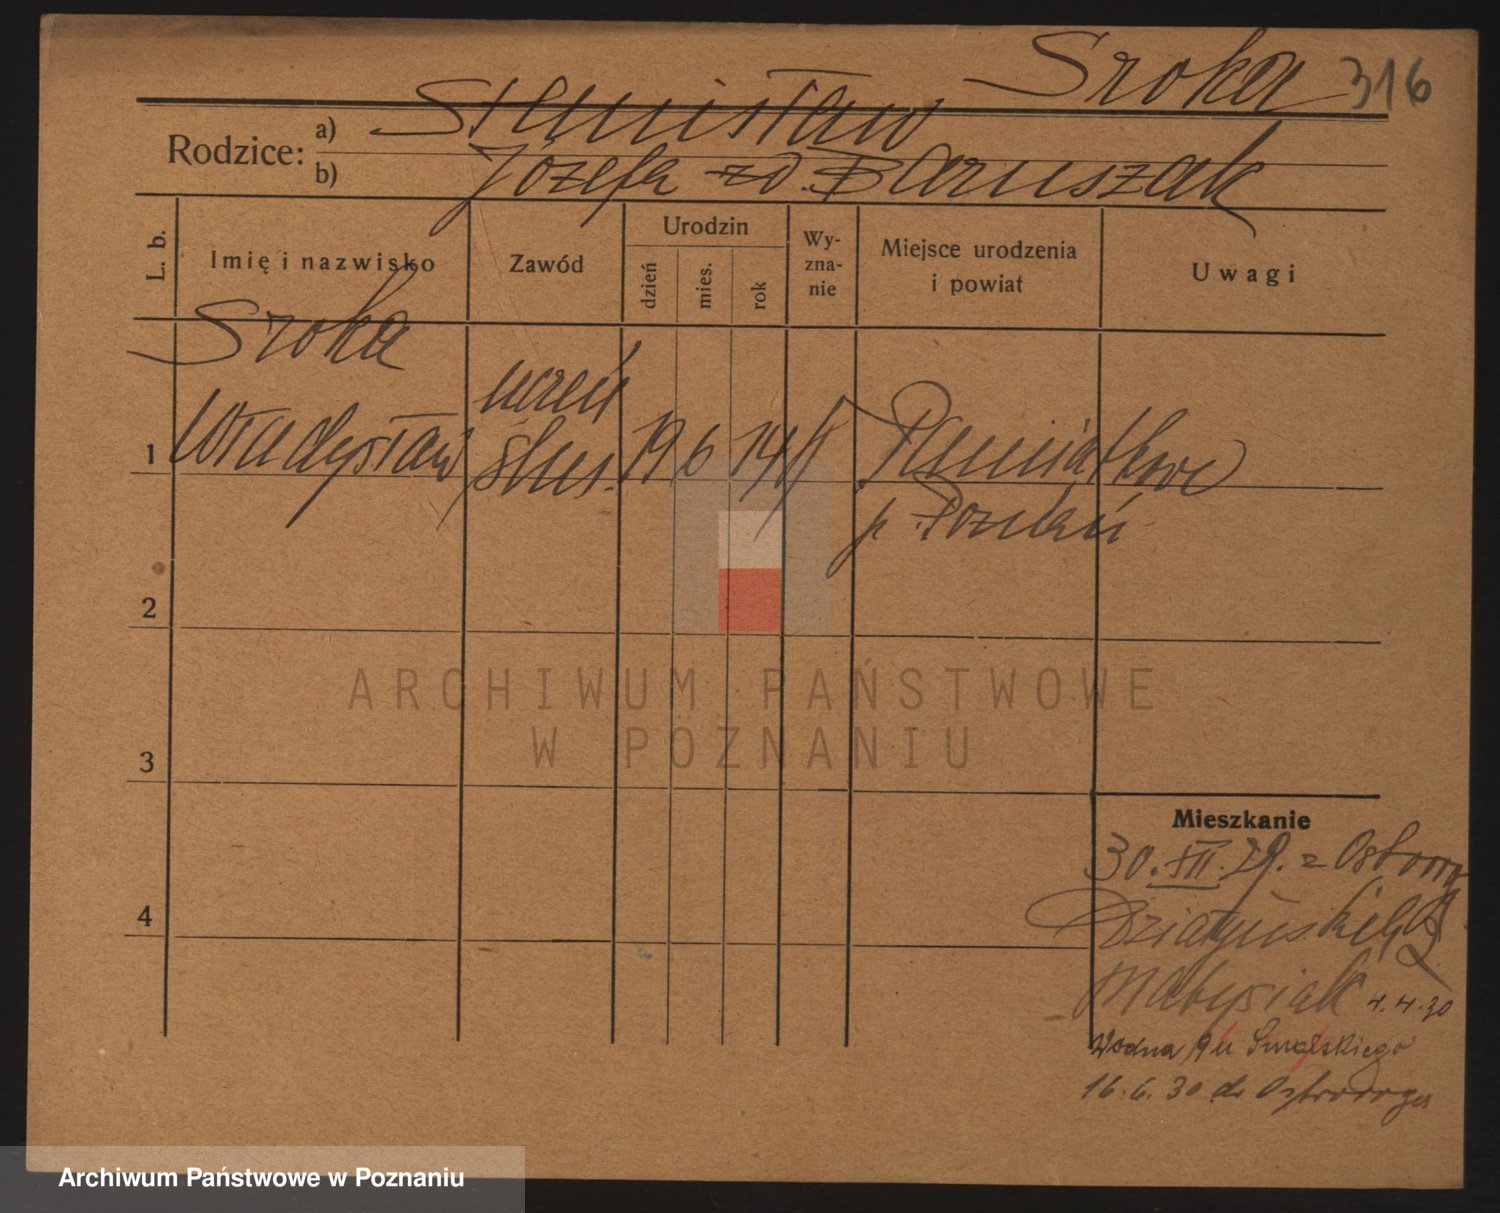 Sroka 316
Rodzice: a) Stanisław
b) Józefa zd. Baruszak
L. b.
Imię i nazwisko
Zawód
Urodzin
dzień
mies.
rok
Wy-
zna-
nie
Miejsce urodzenia
i powiat
Uwagi
Sroka
uczeń
1 Władysław ślus. 19 6 14 Pamiątkowo
p. Poznań
2
3
4
ARCHIWUM PAŃSTWOWE
W POZNANIU
Mieszkanie
30. XII. 29. z Ostroroga
Działyńskich
Matysiak 4.4.30
Wodna 9 u Smolskiego
16.6.30 do Ostroroga
Archiwum Państwowe w Poznaniu